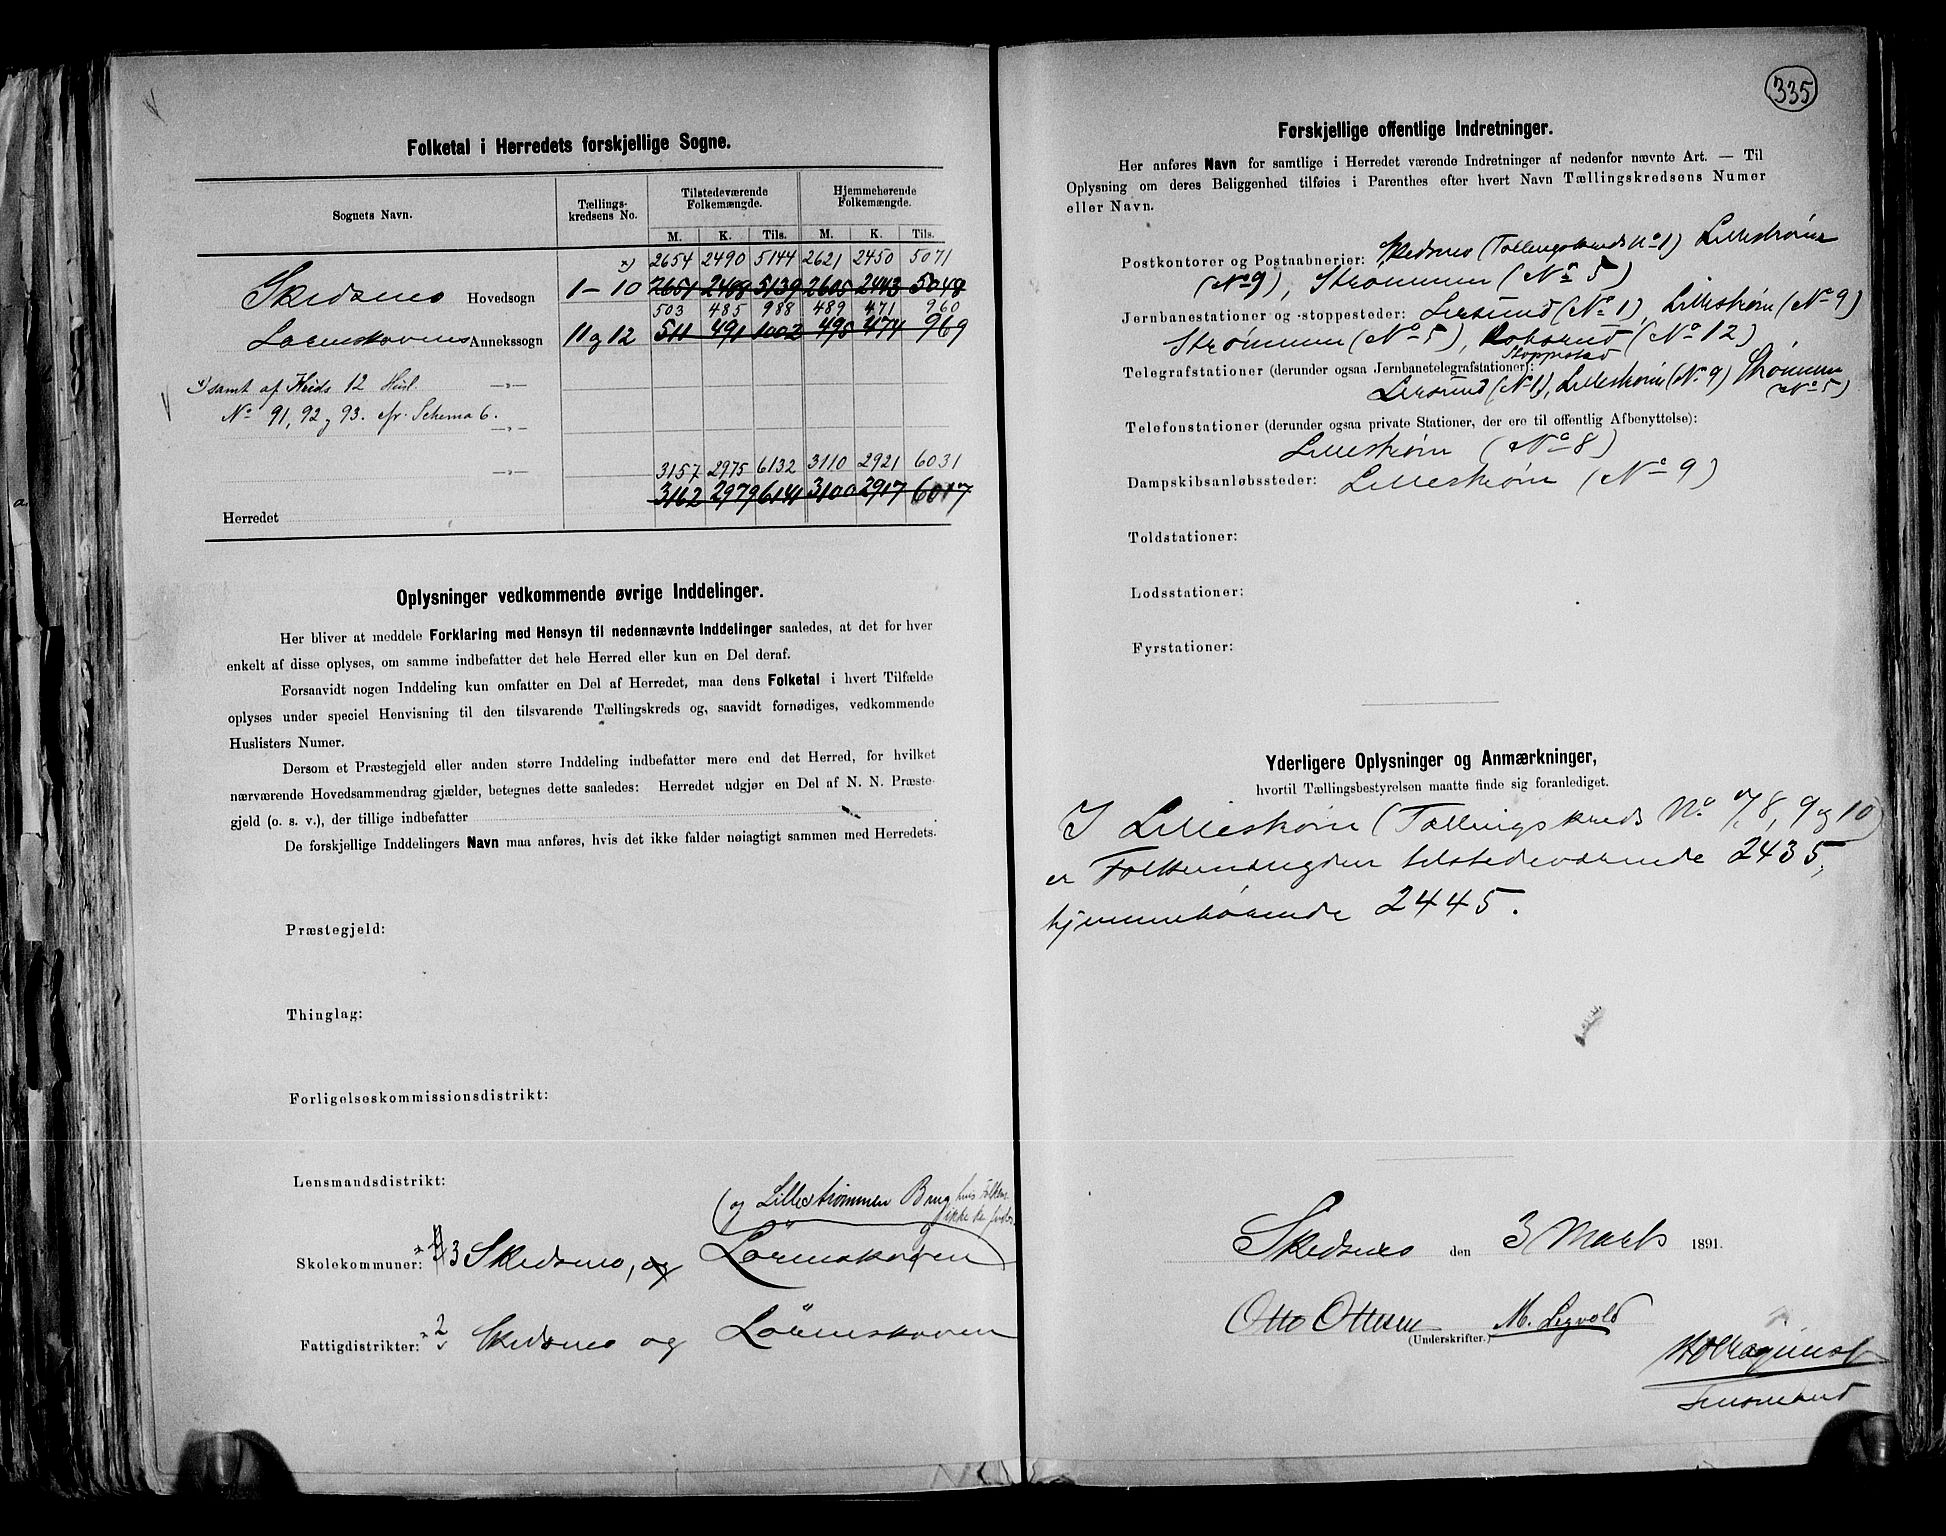 Folketal i Herredets forskjellige Sogne.
Sognets Navn.
Tællings-
kredsens No.
Tilstedeværende
Folkemængde.
Hjemmehørende
Folkemængde.
M. K. Tils. M. K. Tils.
x) 2654 2490 5144 2621 2450 5071
Skedsmo Hovedsogn 1-10 2651 2488 5139 2605 2443 5048
503 485 988 489 471 960
Lørenskoven Annekssogn 11 og 12 511 491 1002 495 474 969
x) samt af Kreds 12 Husl. —„—
No 91, 92 og 93. cfr. Schema 6. —„—
—„—
3157 2975 6132 3110 2921 6031
3162 2979 6141 3100 2917 6017
Herredet
Oplysninger vedkommende øvrige Inddelinger.
Her bliver at meddele Forklaring med Hensyn til nedennævnte Inddelinger saaledes, at det for hver
enkelt af disse oplyses, om samme indbefatter det hele Herred eller kun en Del deraf.
Forsaavidt nogen Inddeling kun omfatter en Del af Herredet, maa dens Folketal i hvert Tilfælde
oplyses under speciel Henvisning til den tilsvarende Tællingskreds og, saavidt fornødiges, vedkommende
Huslisters Numer.
Dersom et Præstegjeld eller anden større Inddeling indbefatter mere end det Herred, for hvilket
nærværende Hovedsammendrag gjælder, betegnes dette saaledes: Herredet udgjør en Del af N. N. Præste-
gjeld (o. s. v.), der tillige indbefatter
De forskjellige Inddelingers Navn maa anføres, hvis det ikke falder nøiagtigt sammen med Herredets.
Præstegjeld:
Thinglag:
Forligelseskommissionsdistrikt:
Lensmandsdistrikt:
(og Lillestrømmen Brug hvis Folkem.
ikke
Skolekommuner: 3 Skedsmo, og Lørenskoven
Fattigdistrikter: 2 Skedsmo og Lørenskoven
335
Forskjellige offentlige Indretninger.
Her anføres Navn for samtlige i Herredet værende Indretninger af nedenfor nævnte Art. — Til
Oplysning om deres Beliggenhed tilføies i Parenthes efter hvert Navn Tællingskredsens Numer
eller Navn.
Postkontorer og Postaabnerier: Skedsmo (Tællingskreds No 1) Lillestrøm
(No 9), Strømmen (No 5)
Jernbanestationer og -stoppesteder: Lersund (No 1), Lillestrøm (No 9)
Strømmen (No 5), Robsrud (No 12)
Stoppested
Telegrafstationer (derunder ogsaa Jernbanetelegrafstationer):
Lersund (No 1), Lillestrøm (No 9) Strømmen
(No 5)
Telefonstationer (derunder ogsaa private Stationer, der ere til offentlig Afbenyttelse):
Lillestrøm (No 8)
Dampskibsanløbssteder: Lillestrøm (No 9)
Toldstationer:
Lodsstationer:
Fyrstationer:
Yderligere Oplysninger og Anmærkninger,
hvortil Tællingsbestyrelsen maatte finde sig foranlediget.
I Lillestrøm (Tællingskreds No 7, 8, 9 og 10)
er Folkemængden tilstedeværende 2435,
hjemmehørende 2445.
Skedsmo den 3 Marts 1891.
Otto Ottesen M. Legvold
(Underskrifter.)